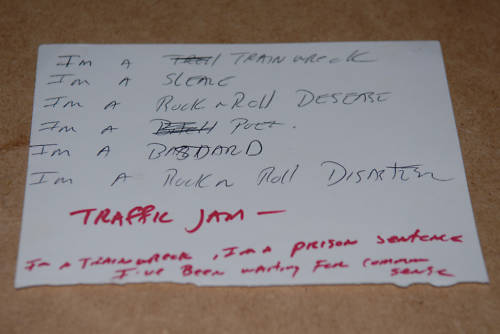 I'm A TRAINWRECK
I'm A SLEAZE
I'm A ROCK N ROLL DESEASE
I'm A POET.
I'm A BASDARD
I'm A ROCK N ROLL DISASTER
TRAFFIC JAM —
I'm A TRAINWRECK, I'm A PRISON SENTENCE
I'VE BEEN WAITING FOR COMMON
SENSE